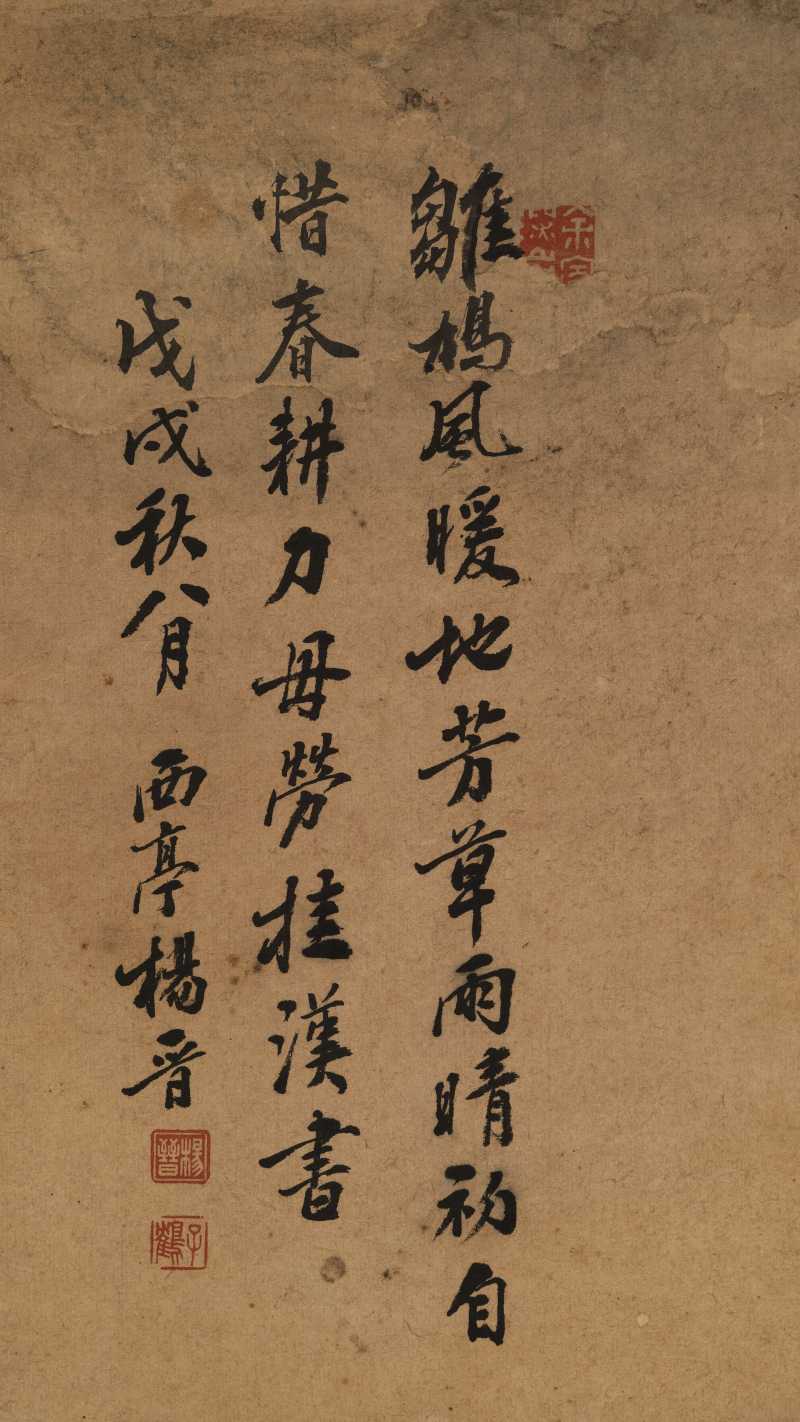 雛鳩風暖地芳草雨晴初自
惜春耕力毋勞挂漢書
戊戌秋八月 西亭楊晉
楊晉
子鶴